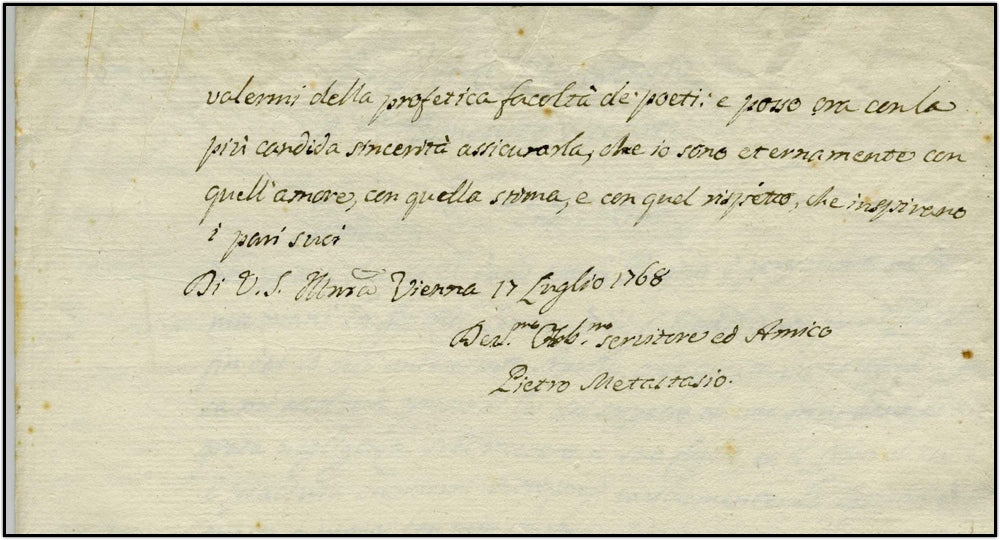 valermi della profetica facoltà de' poeti: e posso ora con la
più candida sincerità assicurarla, che io sono eternamente con
quell'amore, con quella stima, e con quel rispetto, che inspirano
i pari suoi
Di V. S. Illma Vienna 17 Luglio 1768
Dev.mo Obb.mo servitore ed Amico
Pietro Metastasio.